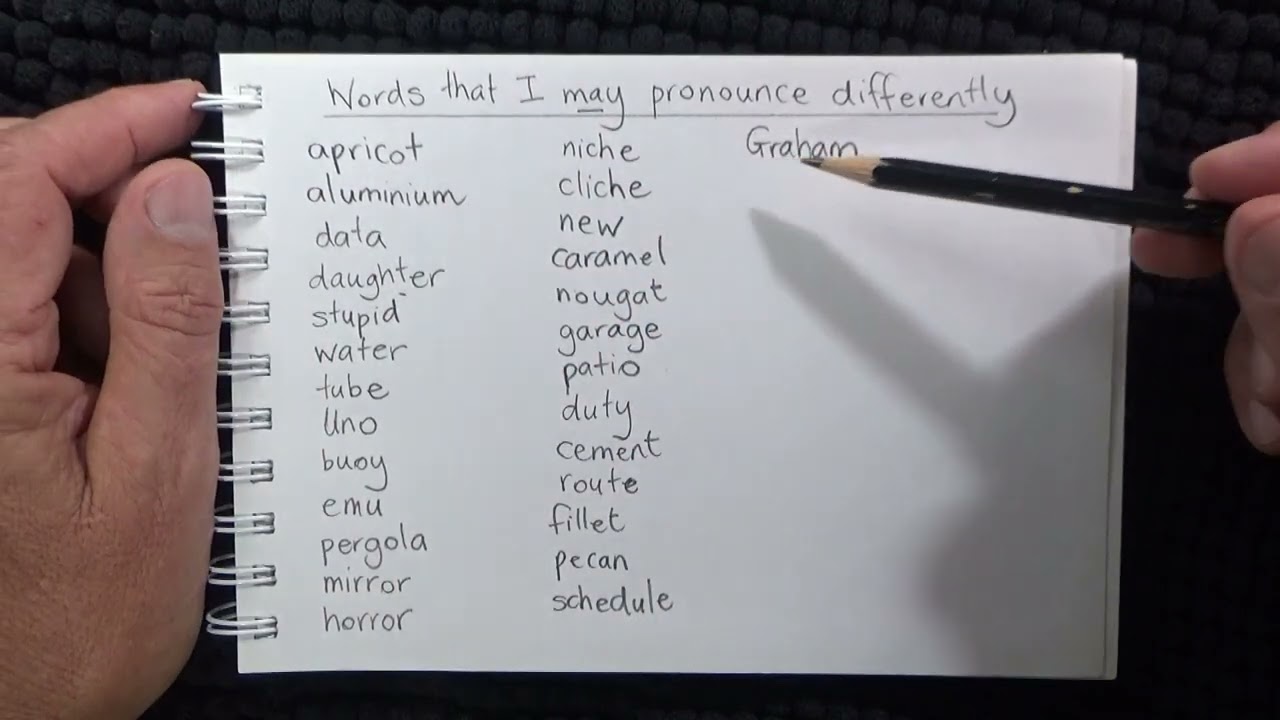 Words that I may pronounce differently
apricot
aluminium
data
daughter
stupid
water
tube
Uno
buoy
emu
pergola
mirror
horror
niche
cliche
new
caramel
nougat
garage
patio
duty
cement
route
fillet
pecan
schedule
Graham